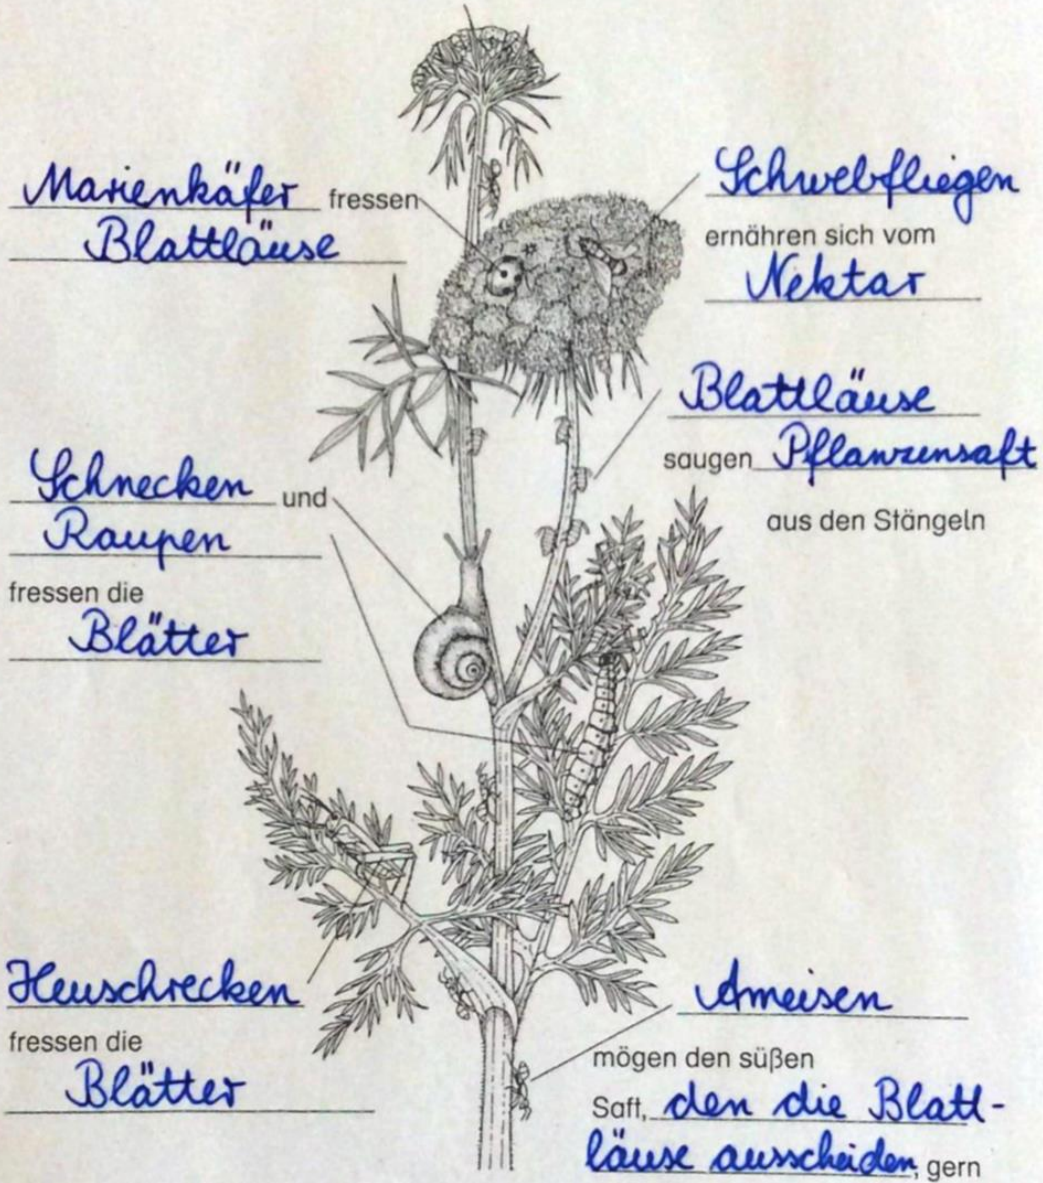 Marienkäfer fressen
Blattläuse
Schwebfliegen
ernähren sich vom
Nektar
Blattläuse
saugen Pflanzensaft
aus den Stängeln
Schnecken und
Raupen
fressen die
Blätter
Heuschrecken
fressen die
Blätter
Ameisen
mögen den süßen
Saft, den die Blatt-
läuse ausscheiden, gern